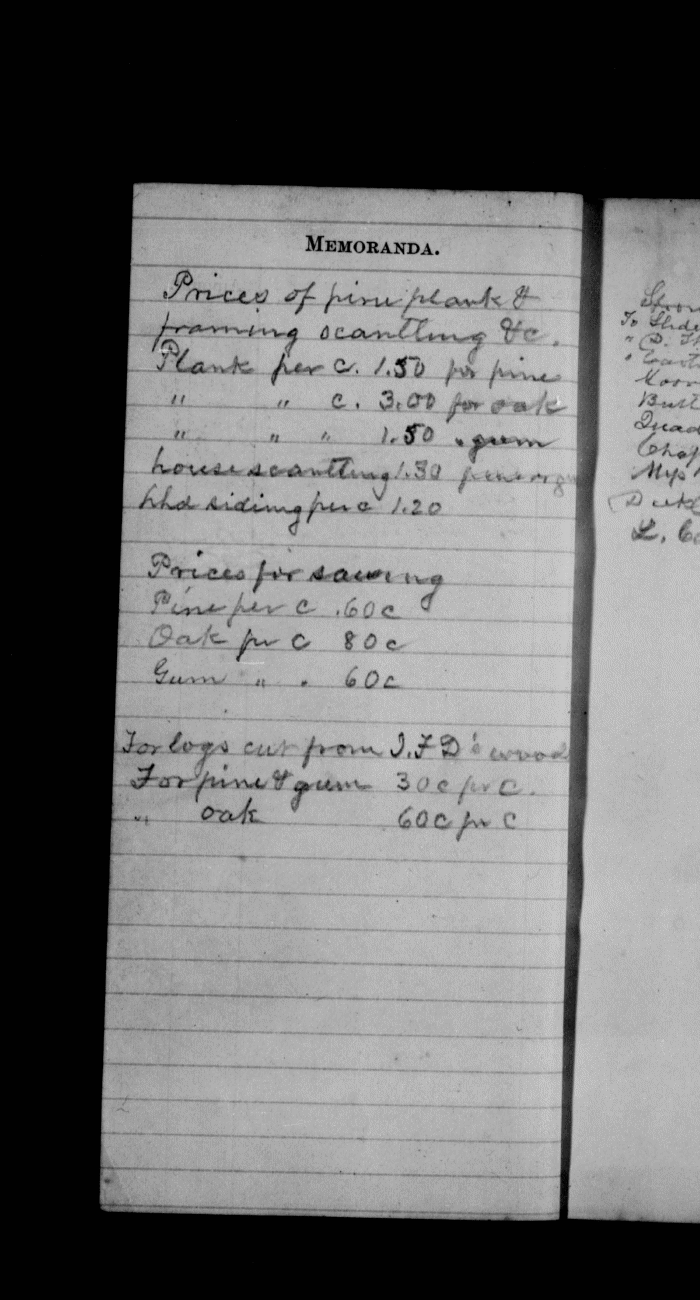 MEMORANDA.
Prices of pine plank &
framing scantling &c.
Plank per c. 1.50 for pine
" " c. 3.00 for oak
" " " 1.50 " gum
house scantling 1.30 pine or gum
hhd siding per c 1.20
Prices for sawing
Pine per c .60c
Oak pr C 80c
Gum " " 60c
For logs cut from J.F.D's wood
For pine & gum 30c pr C.
" oak 60c pr C
To
" D.
L.